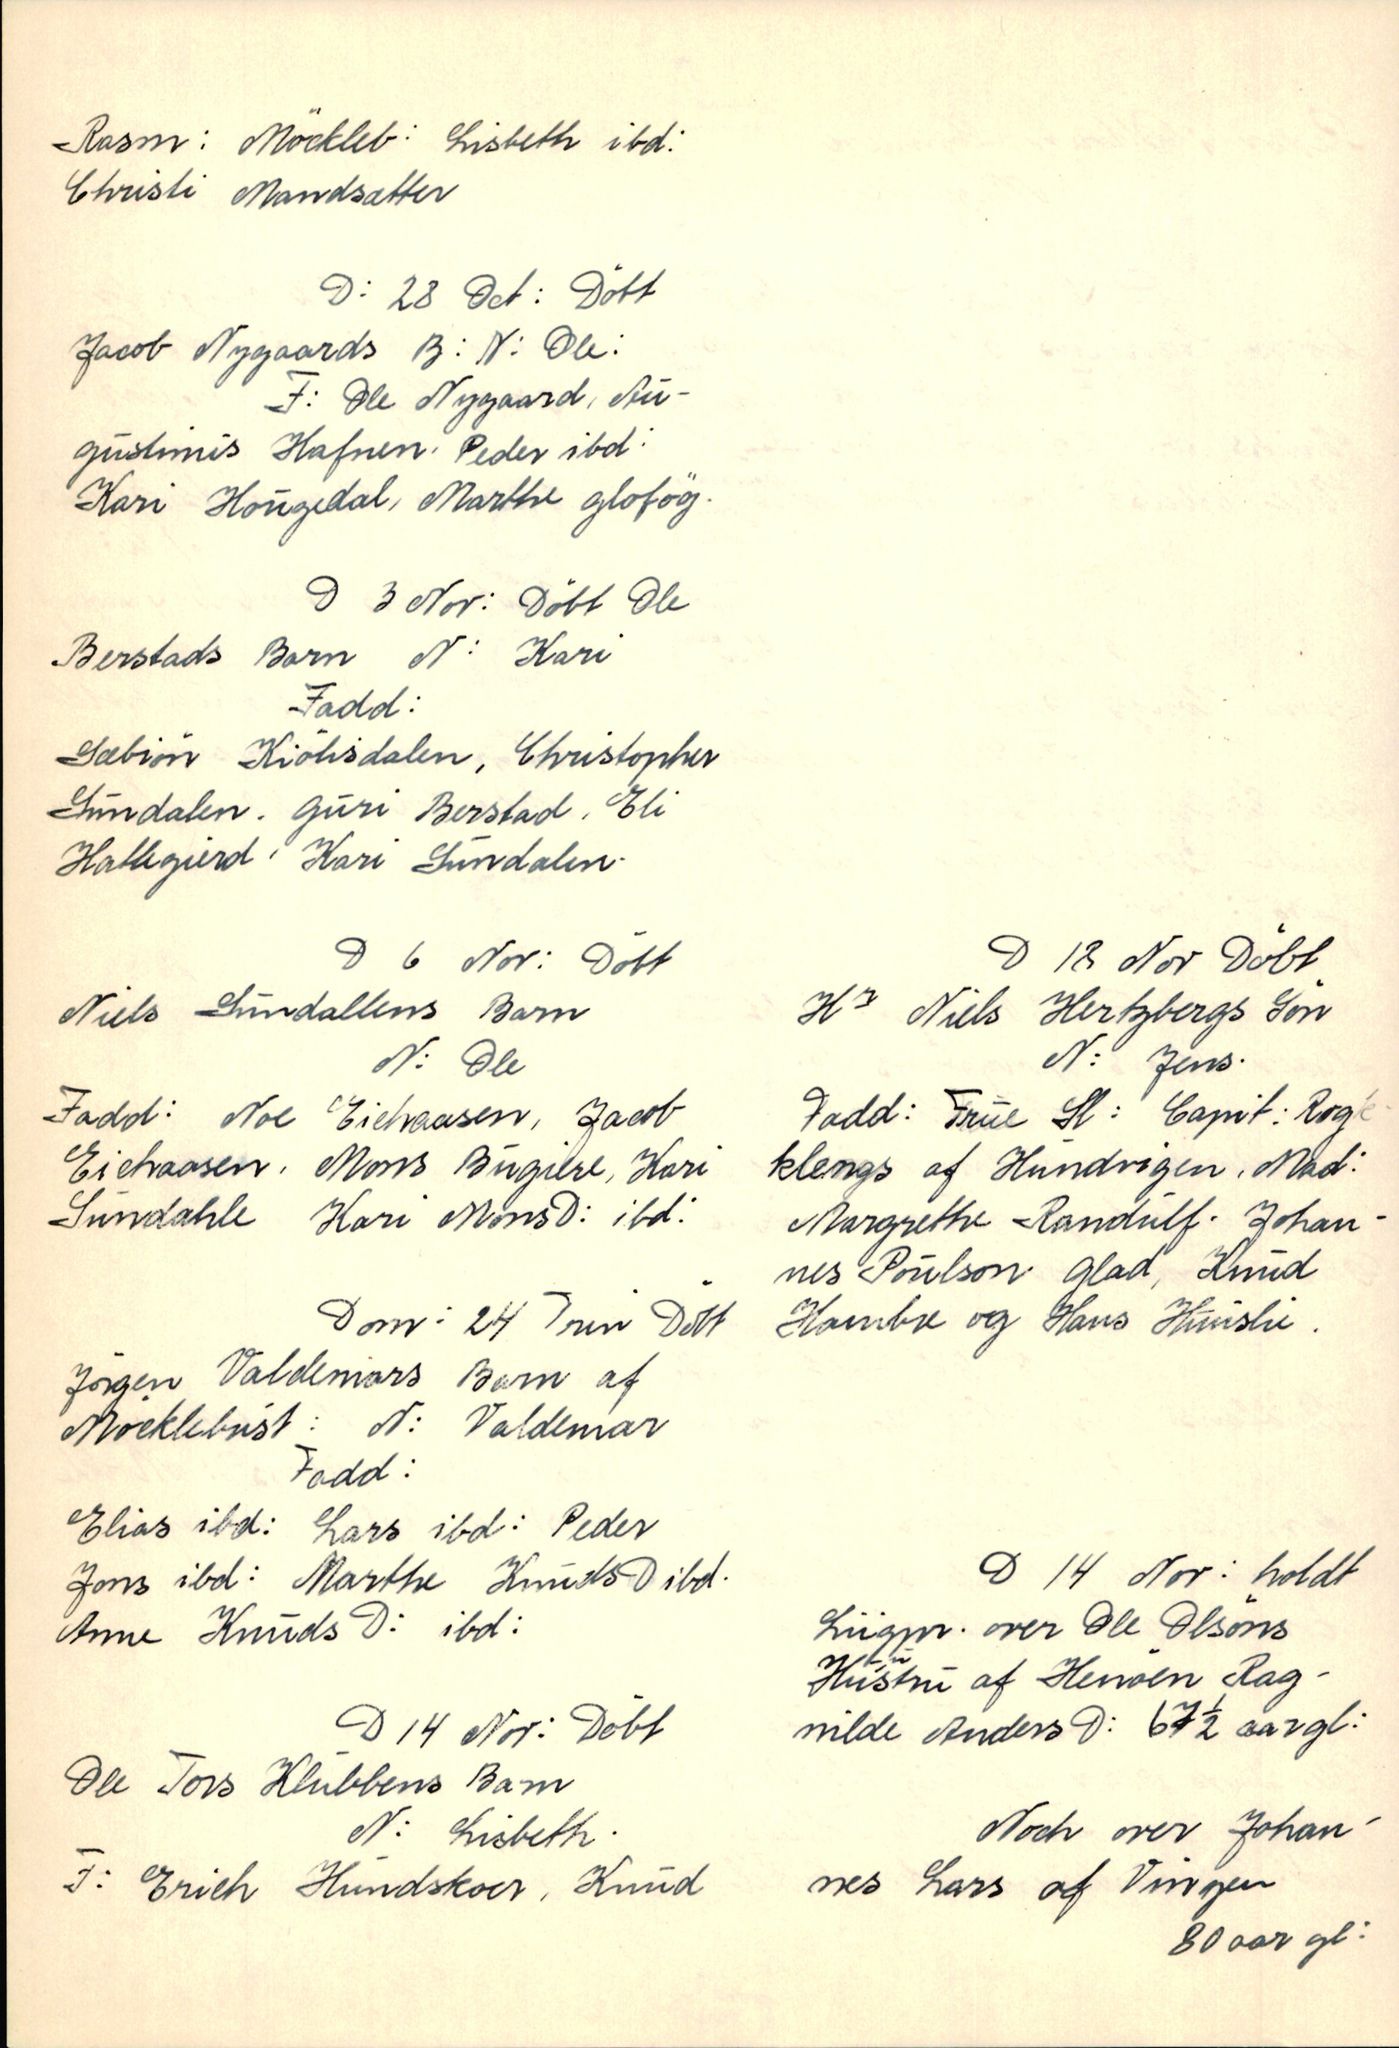 Rasm: Möckleb: Lisbeth ibd:
Christi Mandsætter
D: 28 Oct: Döbt
Jacob Nygaards B: N: Ole:
F: Ole Nygaard, Au-
gustinus Hafnen. Peder ibd:
Kari Hougedal, Marthe glofög.
D 3 Nov: Döbt Ole
Berstads Barn N: Kari
Fadd:
Sæbiön Kiölisdalen, Christopher
Sundalen. Guri Berstad, Eli
Hattegierd, Kari Sundalen.
D 6 Nov: Döbt
Niels Sundallens Barn
N: Ole
Fadd: Noe Eichaasen, Jacob
Eichaasen. Mons Bugiere, Kari
Sundahle Kari MonsD: ibd:
Dom: 24 Trin Döbt
Jörgen Valdemars Barn af
Möcklebust: N: Valdemar
Fadd:
Elias ibd: Lars ibd: Peder
Jons ibd: Marthe KnudsD ibd.
Anne Knuds D: ibd:
D 14 Nov: Döbt
Ole Tors Klubbens Barn
N: Lisbeth.
F: Erich Hundskoer, Knud
D 18 Nov Döbt
Hr Niels Hertzbergs Sön
N: Jens.
Fadd: Frue Sl: Capit:
klengs af Hundvigen, Mad:
Margrethe Randulf. Johan-
nes Poulson glad, Knud
Hambre og Hans Huuslie.
D 14 Nov: holdt
Liigpr. over Ole Olsöns
Hustru af Henöen Rag-
nilde Anders D: 67½ aar gl:
Noch over Johan-
nes Lars af Vingen
80 aar gl: